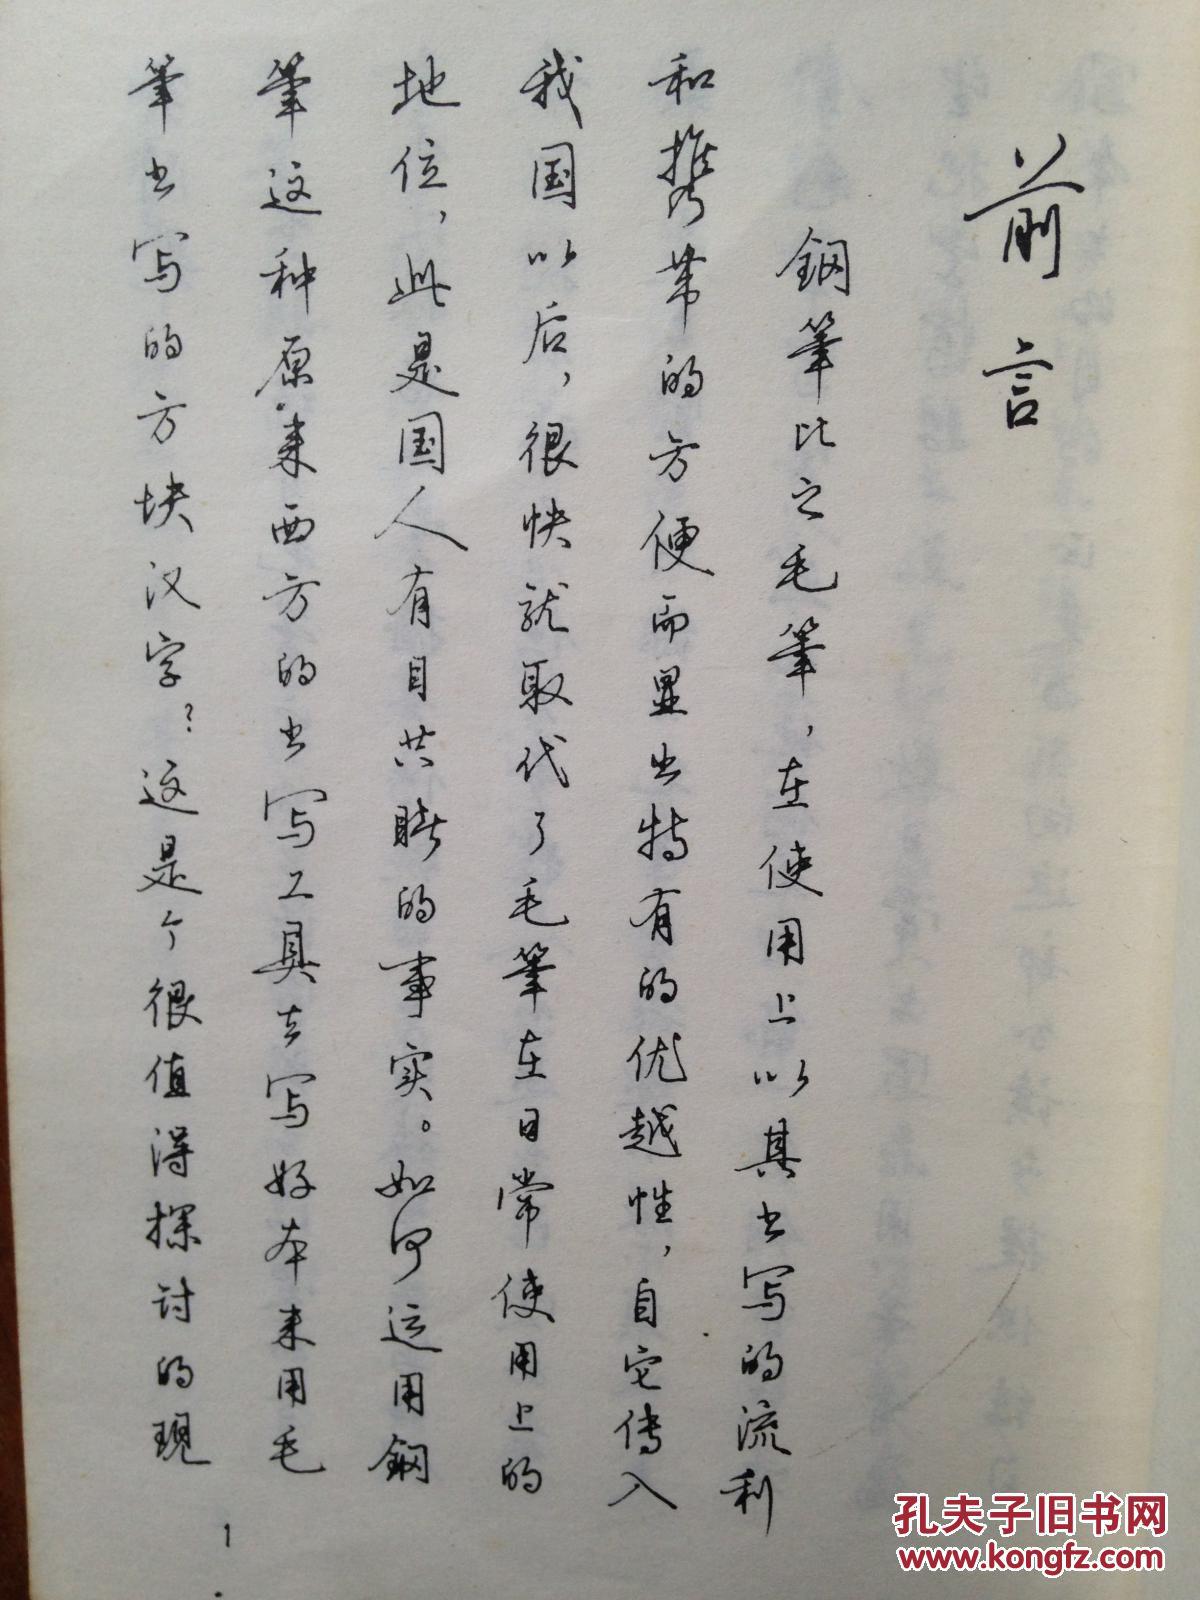 前言
鋼筆比之毛筆，在使用上以其书写的流利
和携带的方便而显出特有的优越性，自它传入
我国以后，很快就取代了毛筆在日常使用上的
地位，此是国人有目共睹的事实。如何运用鋼
筆这种原来西方的书写工具去写好本来用毛
筆书写的方块汉字？这是个很值得探讨的現
1
孔夫子旧书网
www.kongfz.com